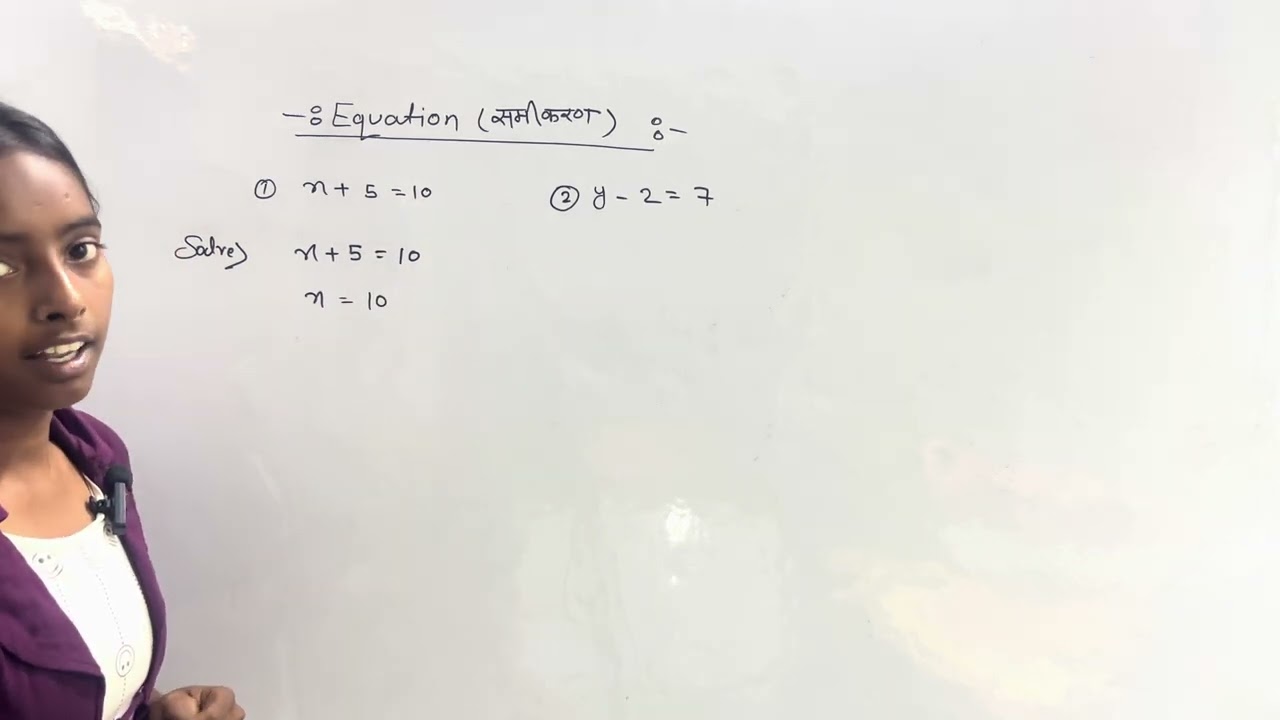 -: Equation (समीकरण) :-
① x + 5 = 10
② y - 2 = 7
Solve) x + 5 = 10
x = 10